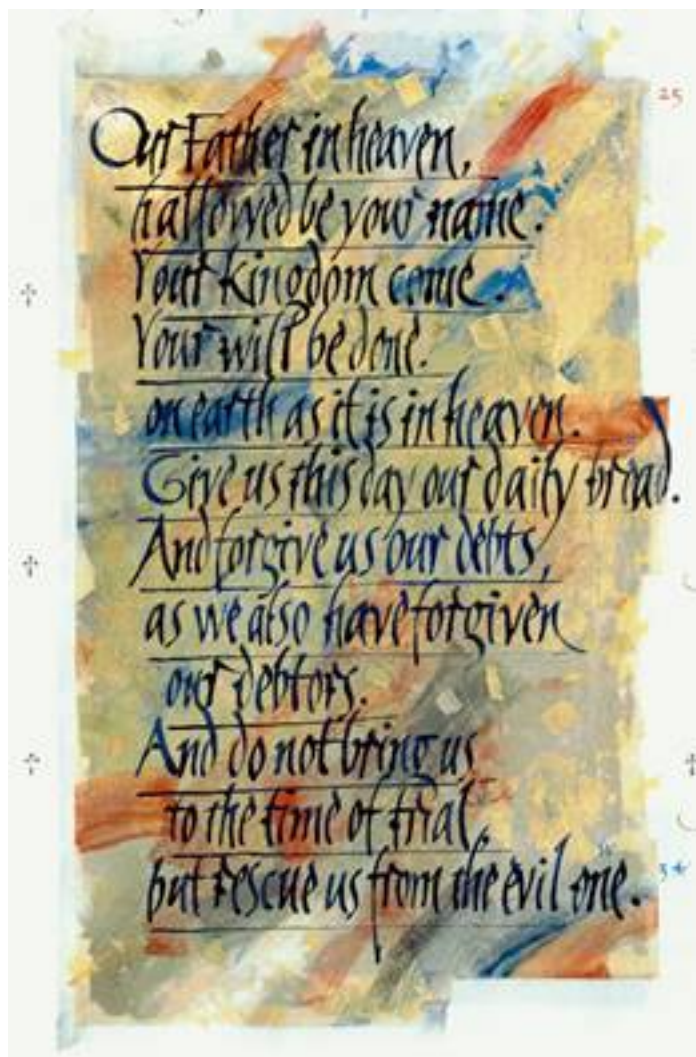 25
Our Father in heaven,
hallowed be your name.
Your kingdom come.
Your will be done.
on earth as it is in heaven.
Give us this day our daily bread.
And forgive us our debts,
as we also have forgiven
our debtors.
And do not bring us
to the time of trial,
but rescue us from the evil one.